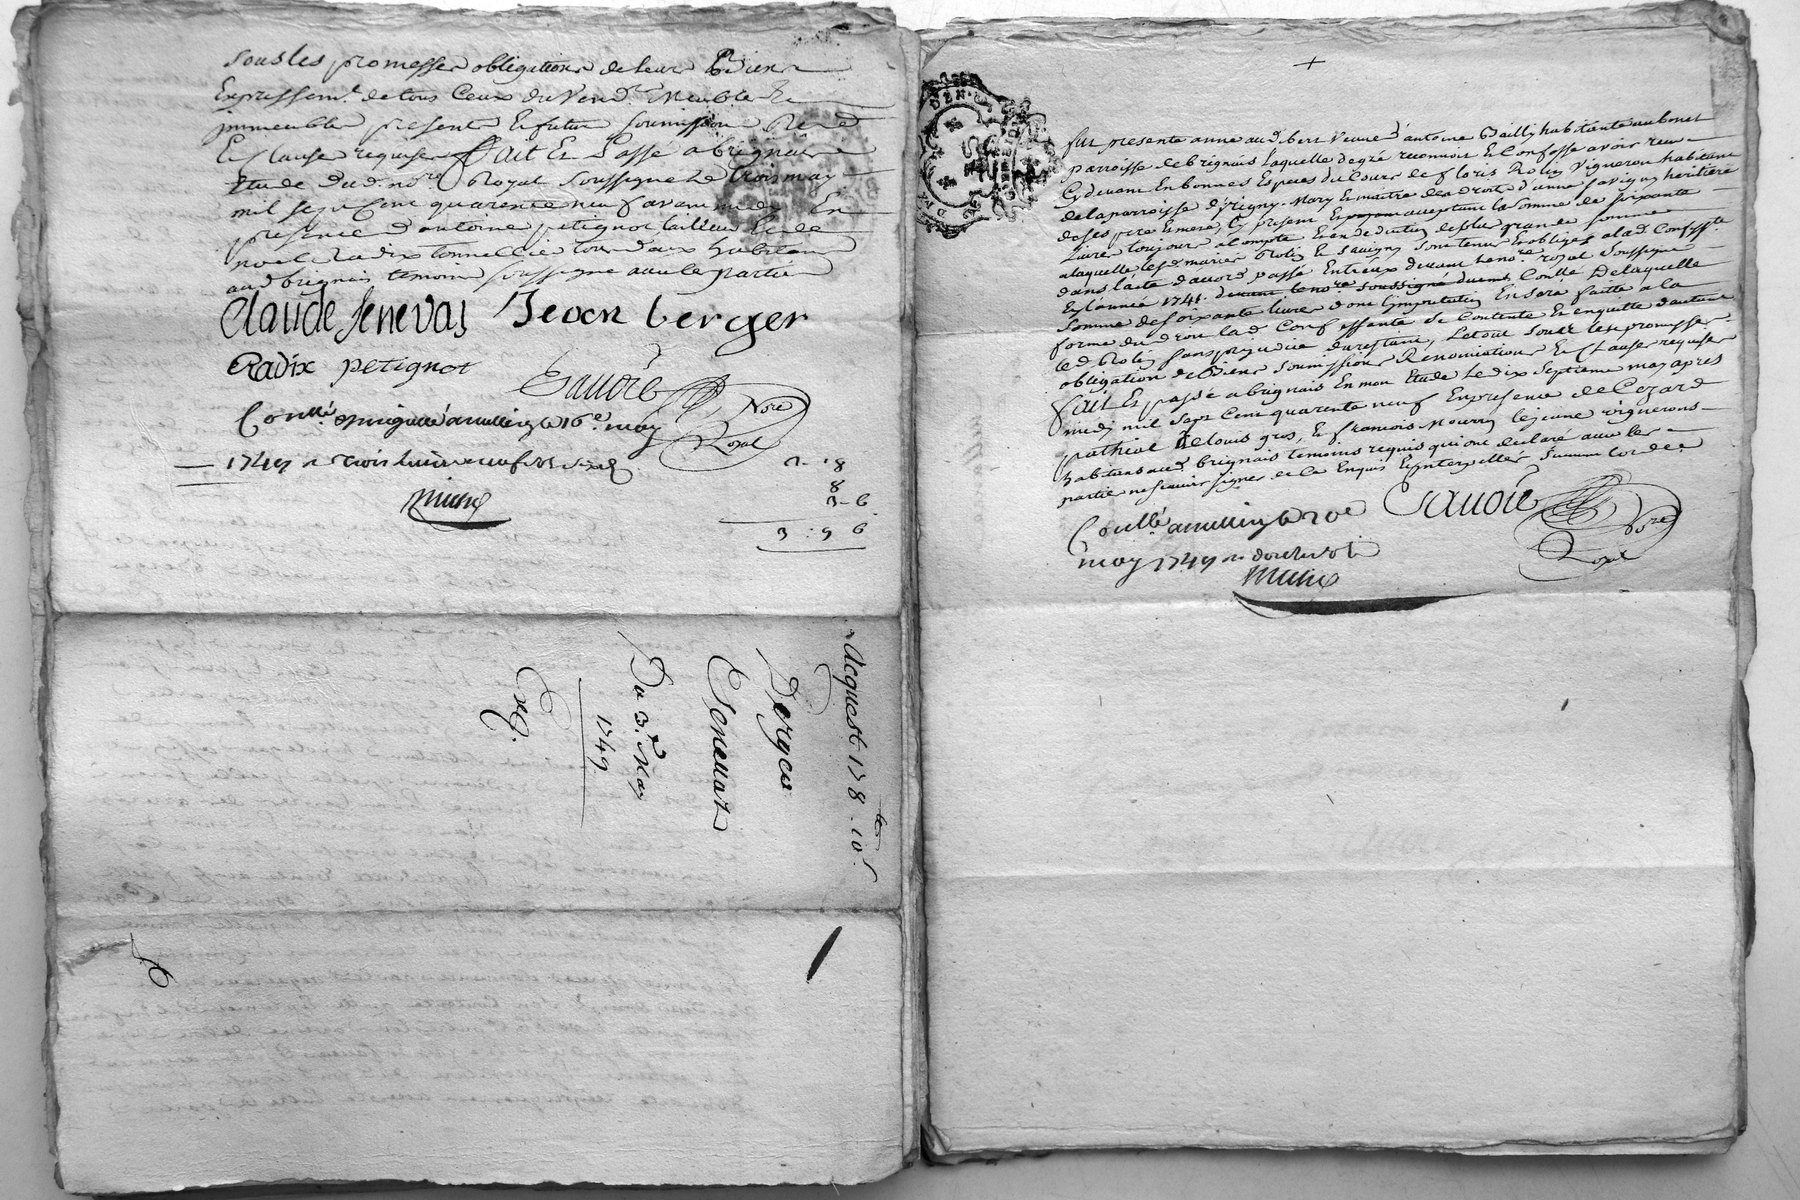 sous les promesses obligations de leurs Biens
Expressemt. de tous Ceux du Vendr. Meubles Et
immeubles presents Et futurs soumissions Ren
Et Clauses requises fait Et Passé a brignais
Etude dud. nore. Royal soussigné Le trois may
mil sept Cent quarente neuf avant midy En
presence d'antoine petignot tailleur Et de
noel Radix tonnellier tous deux habitans
aud brignais temoins soussignés avec les parties
Claude senevas Jean berger
Radix petignot
Gavoré
Nore
Royal
Conllé. a millery le 16e. may
1749 Rx trois livres neuf sols six d
3 - 8
8
3 - 6
3 : 9 6
Acquest 178 lt. 10 s.
Berger
Senevas
Du 3e. May
1749
Exp.
+
fut presente anne audibert Veuve d'antoine Bailly habitante au bonet
parroisse de brignais laquelle de gré reconnoit Et Confesse avoir reçu
Cy devant En bonnes Especes du Cours de floris Rolin Vigneron habitant
de la parroisse d'yrigny. Mary Et maitre des droits d'anne savigny heritiere
de ses pere Et mere, Cy present Et payant acceptant la somme de soixante
livres toujours a Compte Et en deduction de plus grande somme
a laquelle lesd. mariés Rolin Et savigny sont tenus Et obligés a lad. Confesste.
dans l'acte d'accord passé Entr'eux devant le nore. royal soussigné
En l'année 1741. devant le nore. soussigné duemt. Conllé De laquelle
somme de soixante livres dont l'imputation En sera faitte a la
forme du droit lad. Confessante se Contente Et en quitte d'autant
led. Rolin sans prejudice du restant, Le tout sous les promesses
obligation de Biens soumissions Renonciations Et Clauses requises
fait Et passé a brignais En mon Etude Le dix septieme may apres
midy mil sept Cent quarente neuf En presence de Cezard
pathiol Et louis gros, Et francois Mourry le jeune vignerons
habitans aud. brignais temoins requis qui ont declaré avec les
parties ne scavoir signer de Ce Enquis Et interpellés suivant lordce.
Gavoré
Nore
Royal
Conllé. a millery le 20e
may 1749 Rx douze sols